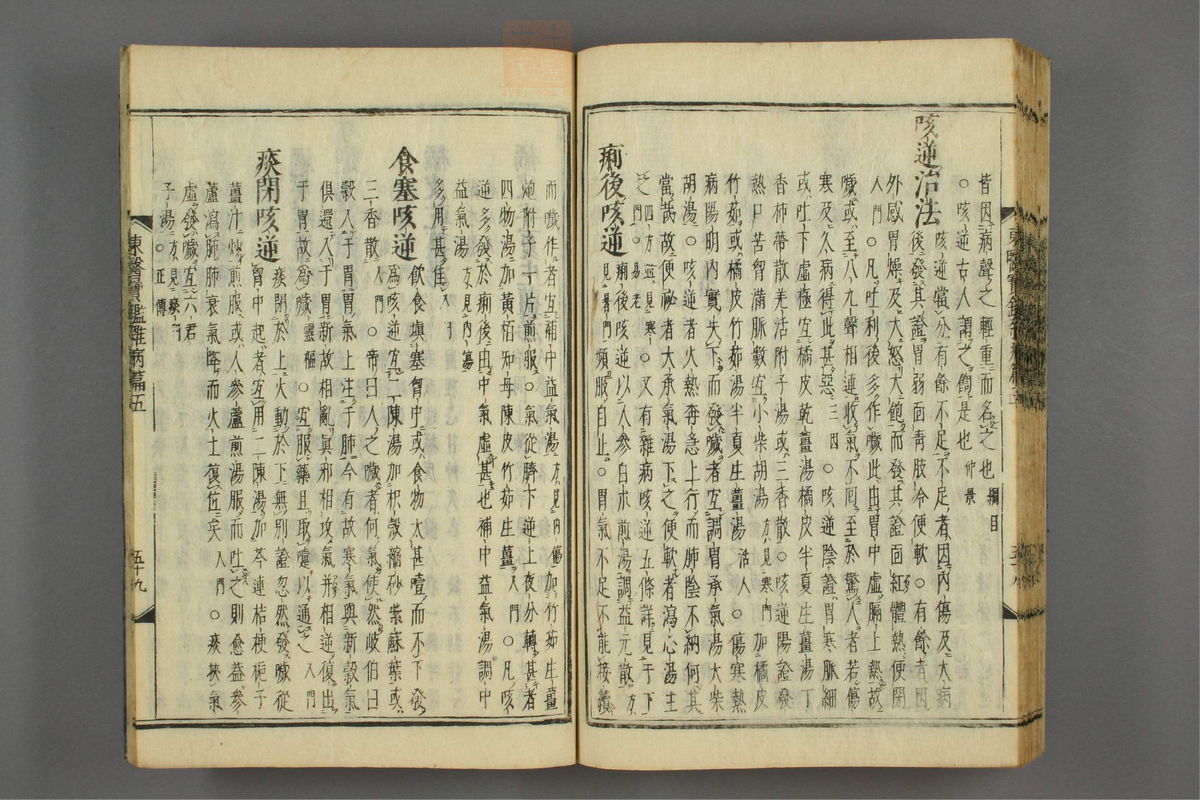 皆因病聲之輕重而名之也綱目
○咳逆古人謂之噦是也仲景
咳逆治法
咳逆當分有餘不足不足者因內傷及大病
後發其證胃弱面靑肢冷便軟○有餘者因
外感胃燥及大怒大飽而發其證面紅體熱便閉
入門○凡吐利後多作噦此由胃中虛膈上熱故
噦或至八九聲相連收氣不回至於驚人者若傷
寒及久病得此甚惡三因○咳逆陰證胃寒脈細
或吐下虛極宜橘皮乾薑湯橘皮半夏生薑湯丁
香柿蒂散羌活附子湯或三香散○咳逆陽證發
熱口苦胷滿脈數宜小柴胡湯方見寒門加橘皮
竹茹或橘皮竹茹湯半夏生薑湯活人○傷寒熱
病陽明內實失下而發噦者宜調胃承氣湯大柴
胡湯○咳逆者火熱奔急上行而肺陰不納何其
當哉故便秘者大承氣湯下之便軟者瀉心湯主
之四方並見寒門易老○又有雜病咳逆五條詳見于下
痢後咳逆
痢後咳逆以人參白朮煎湯調益元散方
見暑門頻服自止○胃氣不足不能接續
而噦作者宜補中益氣湯方見內傷加竹茹生薑
炮附子一片煎服○氣從臍下逆上夜分轉甚者
四物湯加黃栢知母陳皮竹茹生薑入門○凡咳
逆多發於痢後由中氣虛甚也補中益氣湯調中
益氣湯方見內傷
多用甚佳入門
食塞咳逆
飮食塡塞胷中或食物太甚噎而不下發
爲咳逆宜二陳湯加枳殼縮砂紫蘇葉或
三香散入門○帝曰人之噦者何氣使然岐伯曰
穀入于胃胃氣上注于肺今有故寒氣與新穀氣
俱還入于胃新故相亂眞邪相攻氣幷相逆復出
于胃故爲噦靈樞○宜服藥且取嚔以通之入門
痰閉咳逆
痰閉於上火動於下無別證忽然發噦從
胷中起者宜用二陳湯加芩連桔梗梔子
薑汁炒煎服或人參蘆煎湯服而吐之則愈益參
蘆瀉肺肺衰氣降而火土復位矣入門○痰挾氣
虛發噦宜六君
子湯方見痰門○正傳
東醫寶鑑雜病篇五
五十九